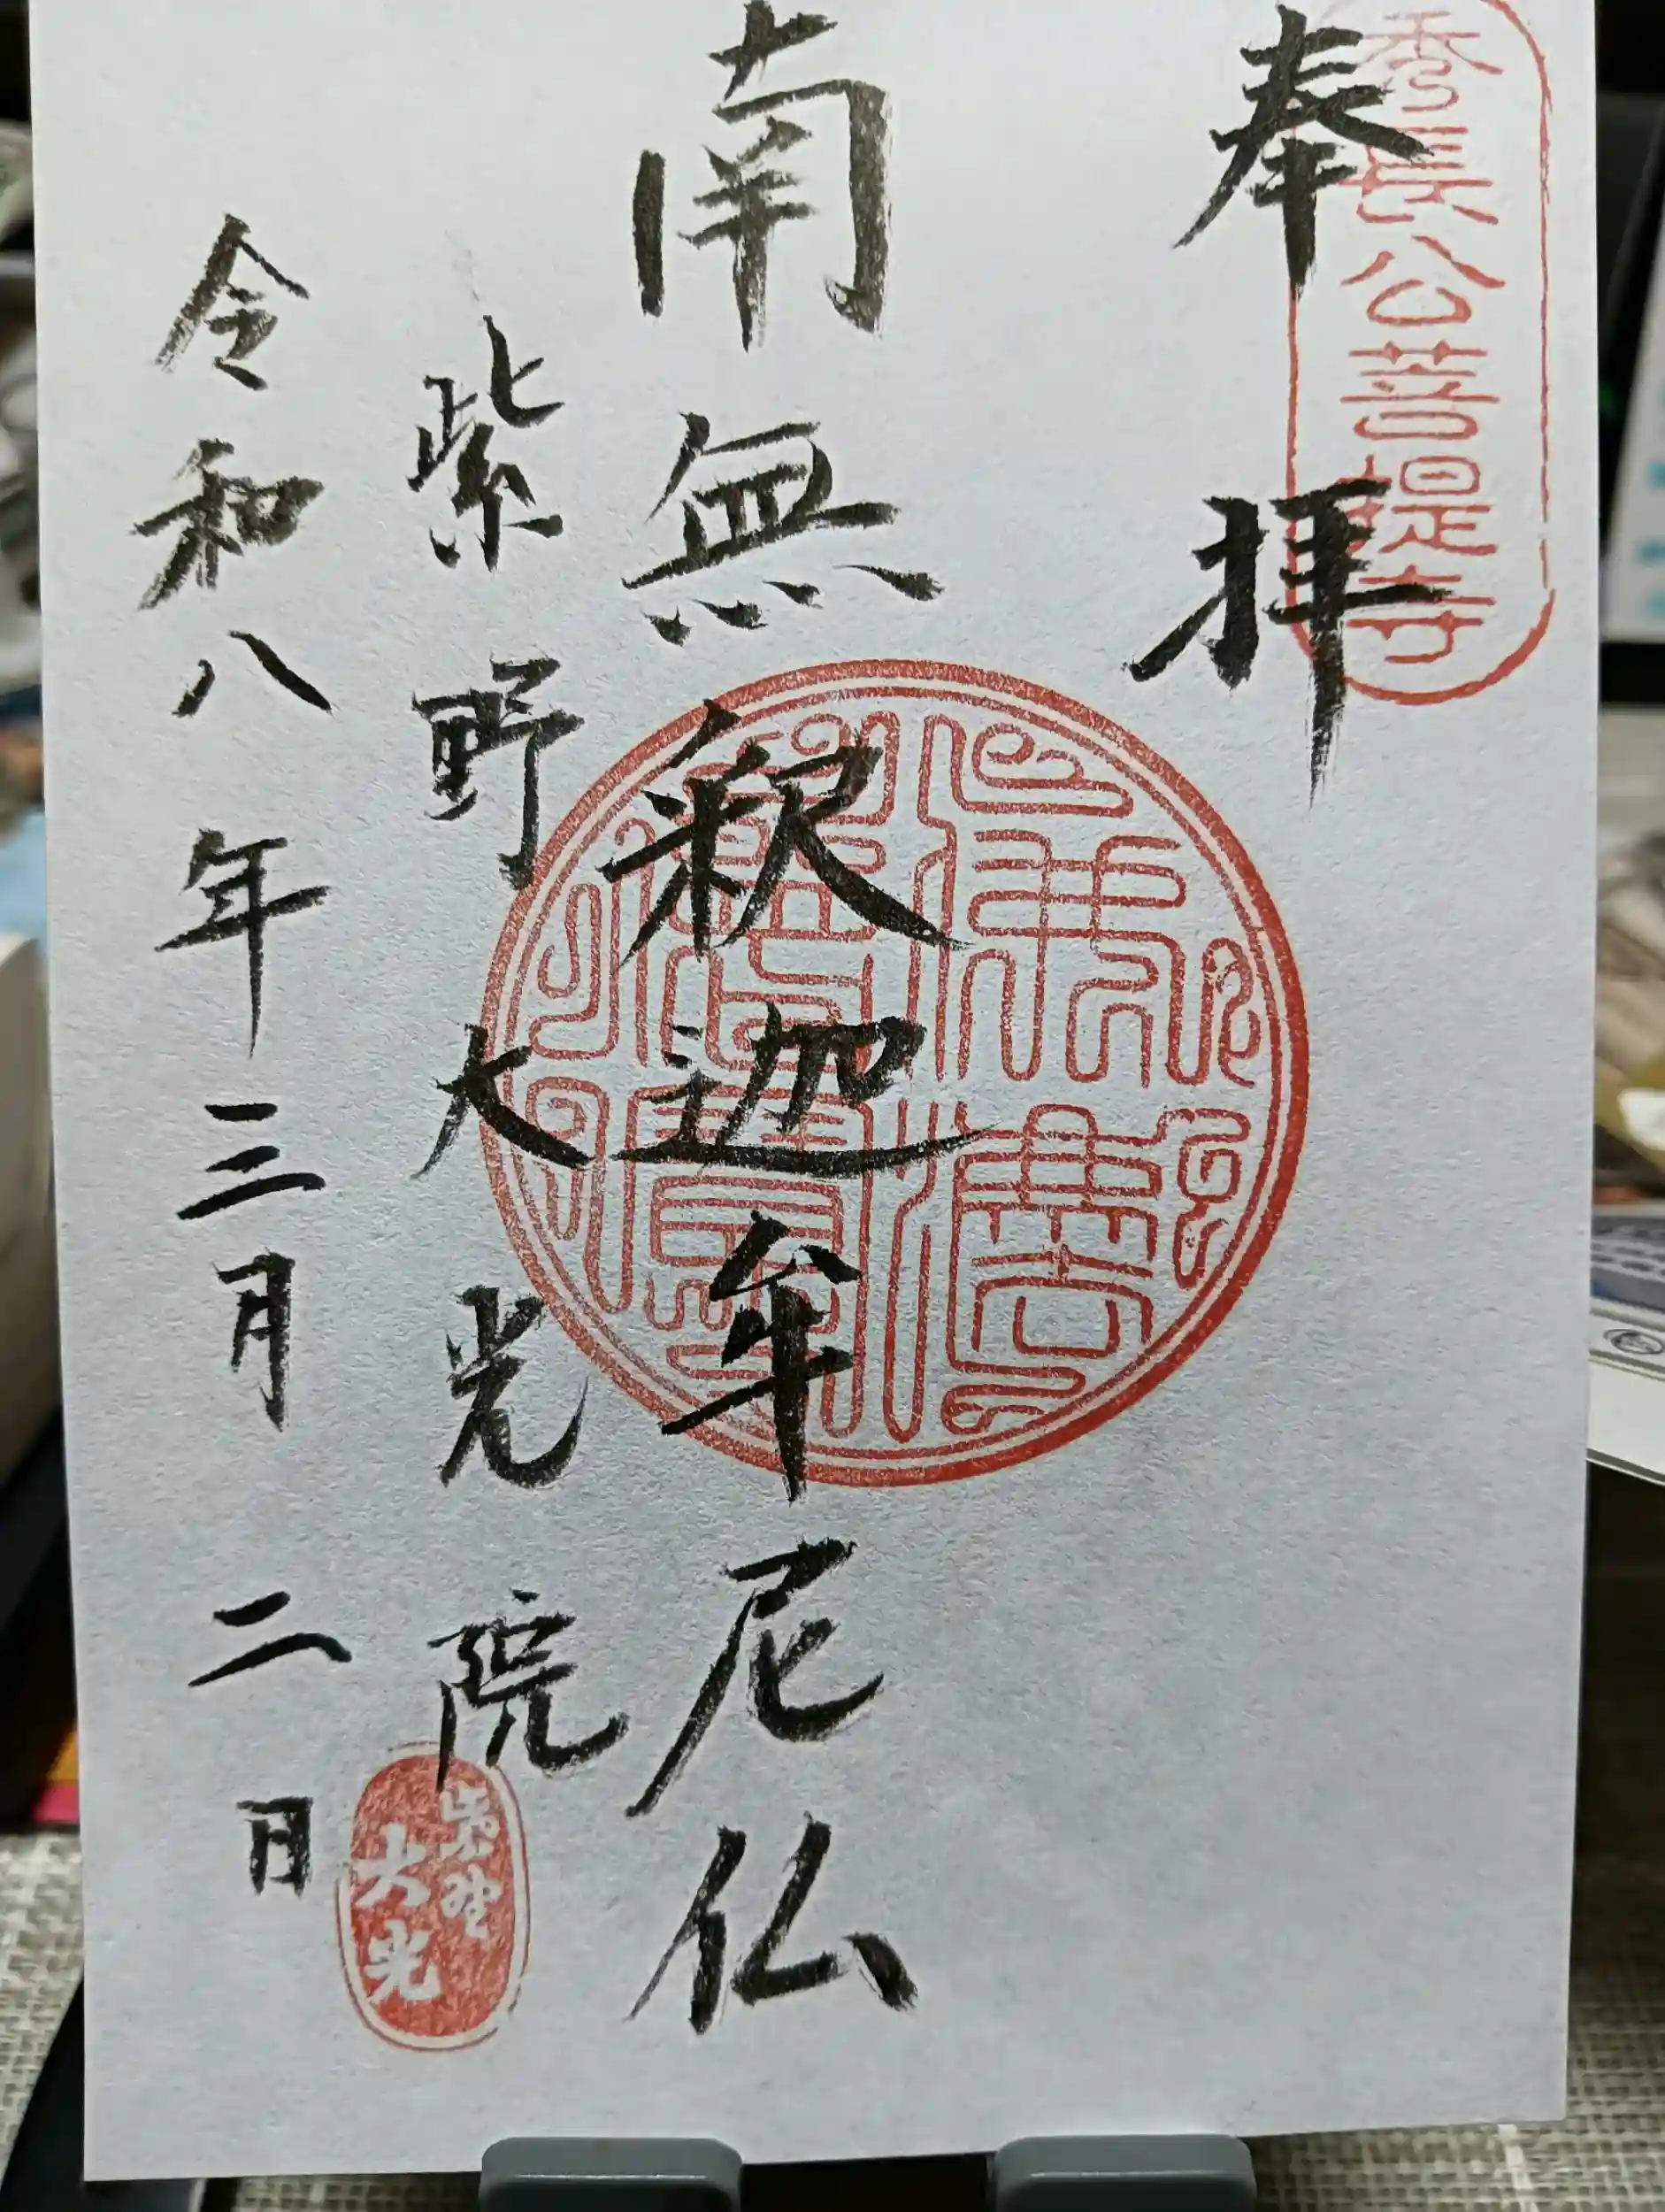 秀長公菩提寺
奉拝
南無釈迦牟尼仏
佛法僧寶
紫野大光院
紫野
大光
令和八年三月二日